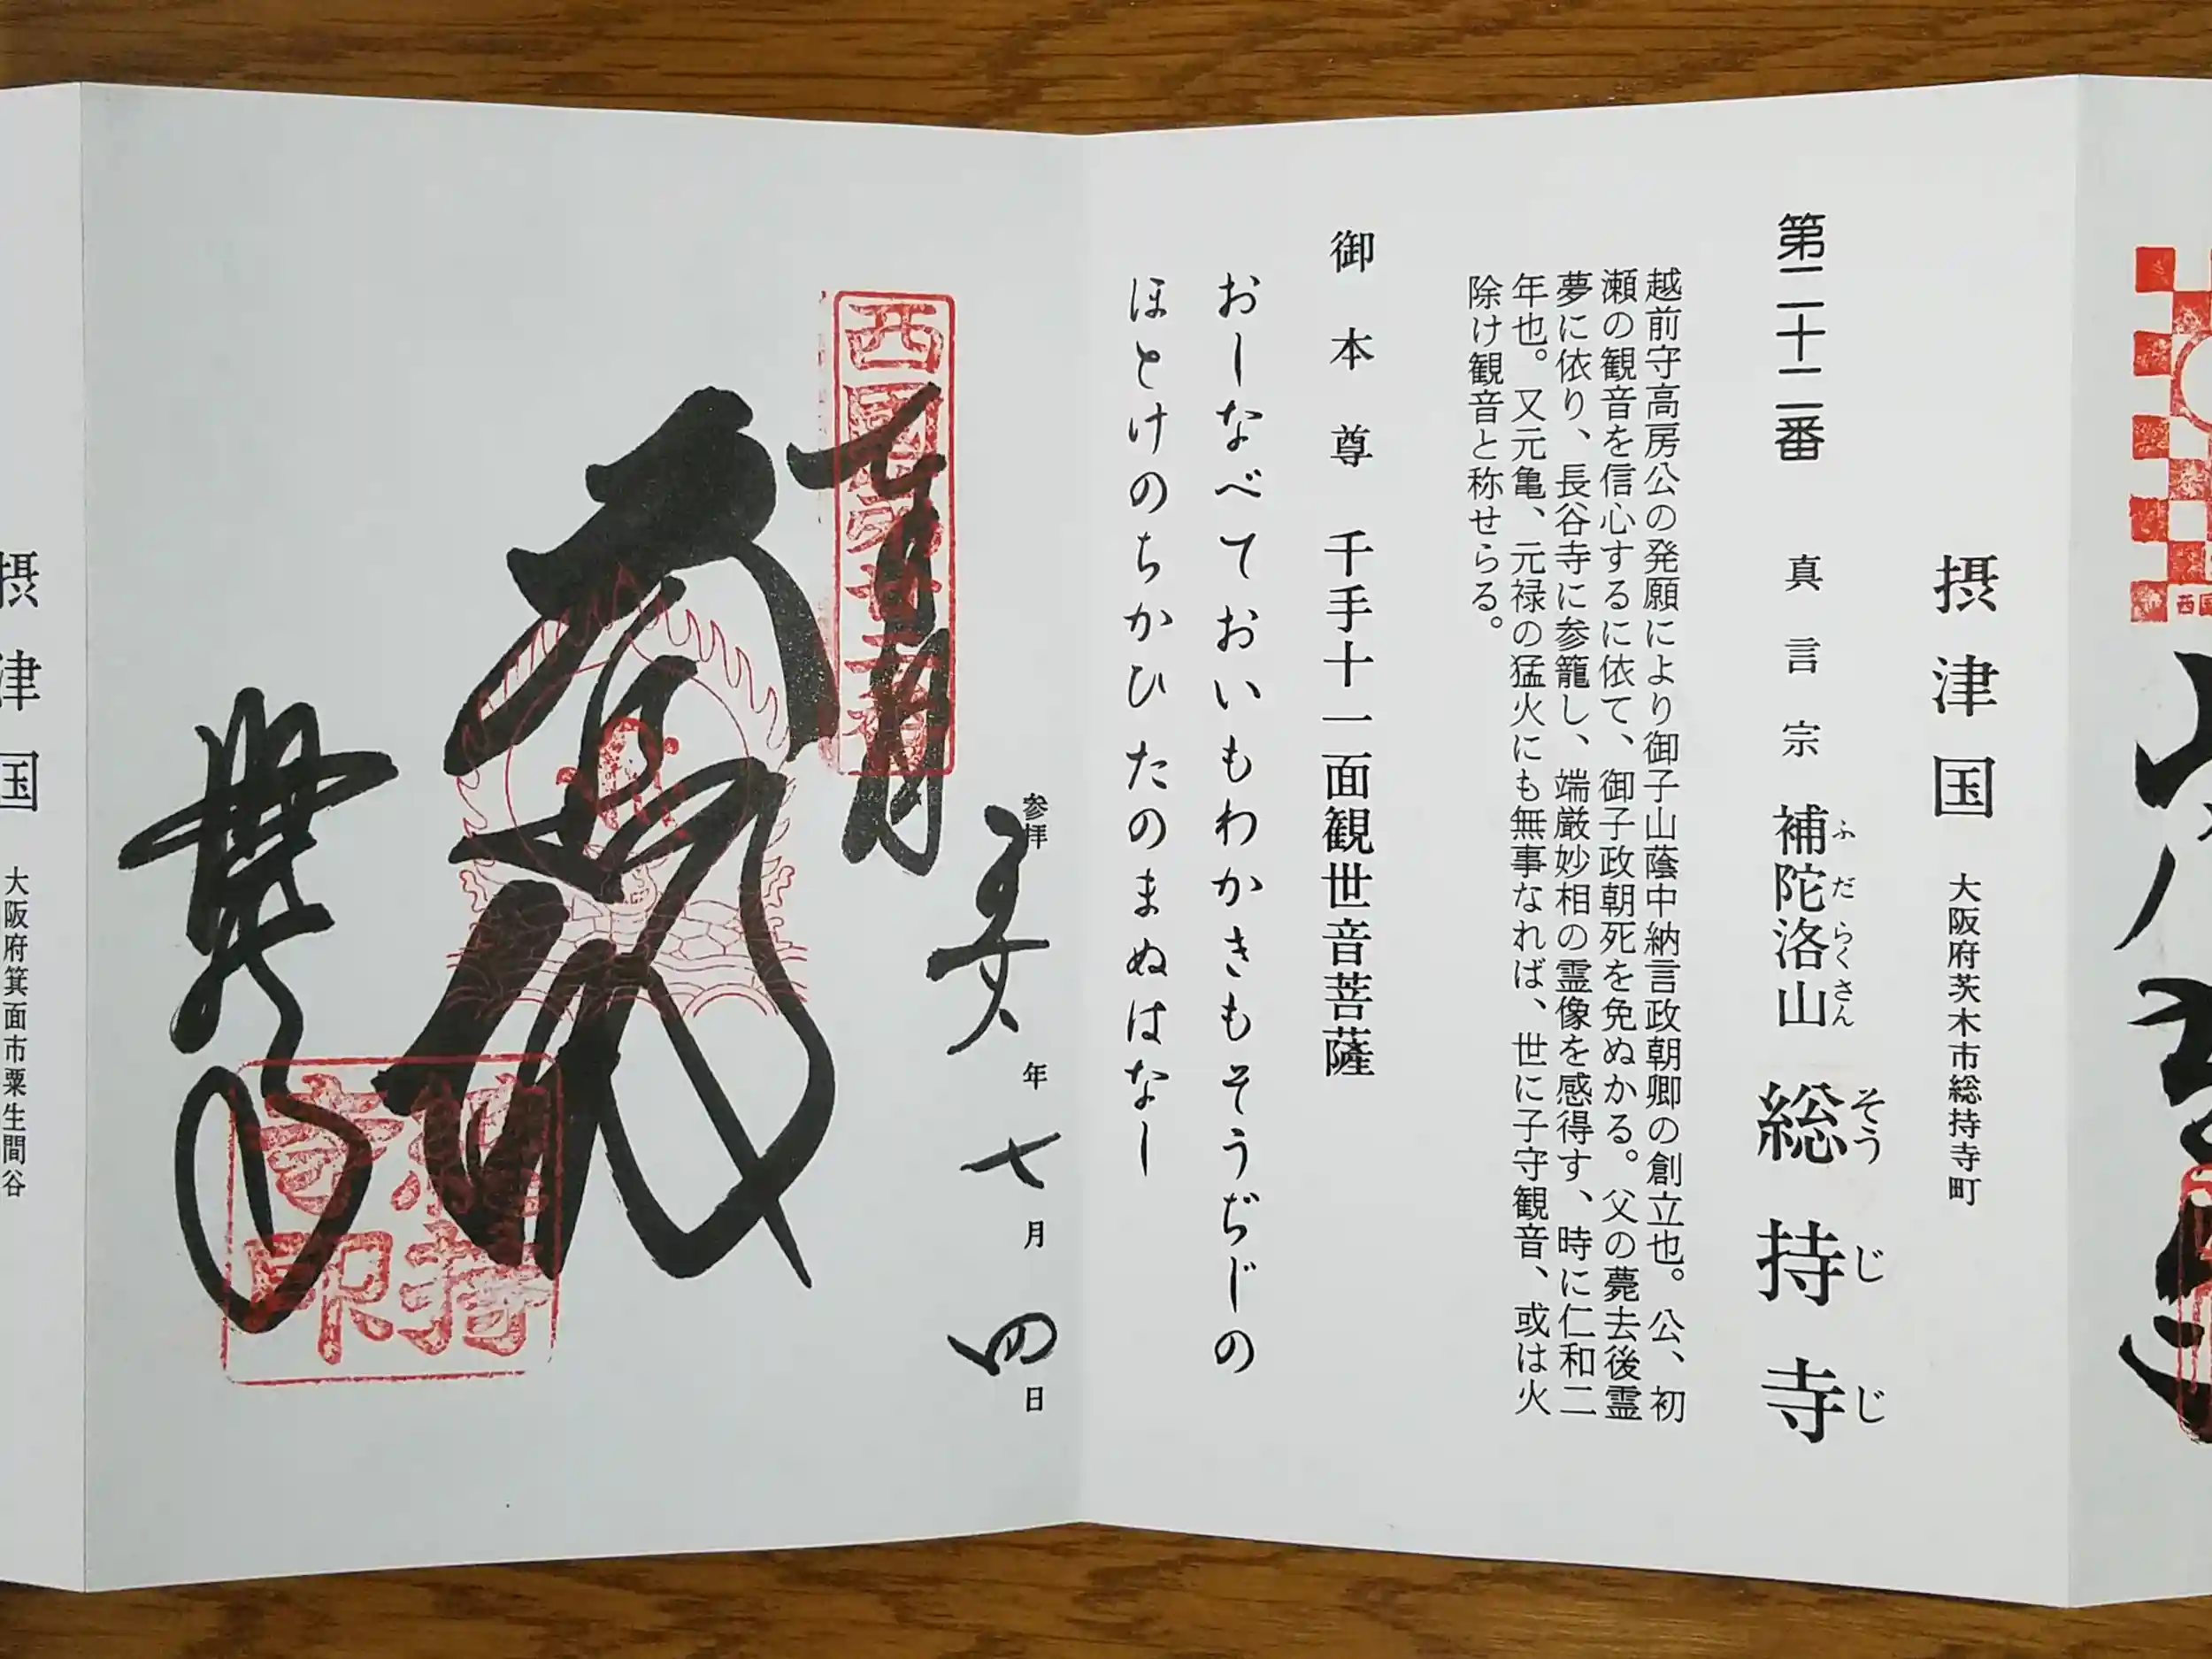 西国
摂津国 大阪府茨木市総持寺町
第二十二番 真言宗 補陀洛山 総持寺
ふだらくさん そうじじ
越前守高房公の発願により御子山蔭中納言政朝卿の創立也。公、初
瀬の観音を信心するに依て、御子政朝死を免ぬかる。父の薨去後霊
夢に依り、長谷寺に参籠し、端厳妙相の霊像を感得す、時に仁和二
年也。又元亀、元禄の猛火にも無事なれば、世に子守観音、或は火
除け観音と称せらる。
御本尊 千手十一面観世音菩薩
おしなべておいもわかきもそうぢじの
ほとけのちかひたのまぬはなし
参拝 年 七月 四日
奉拝
西國第廿二番
総持寺印
摂津国 大阪府箕面市粟生間谷